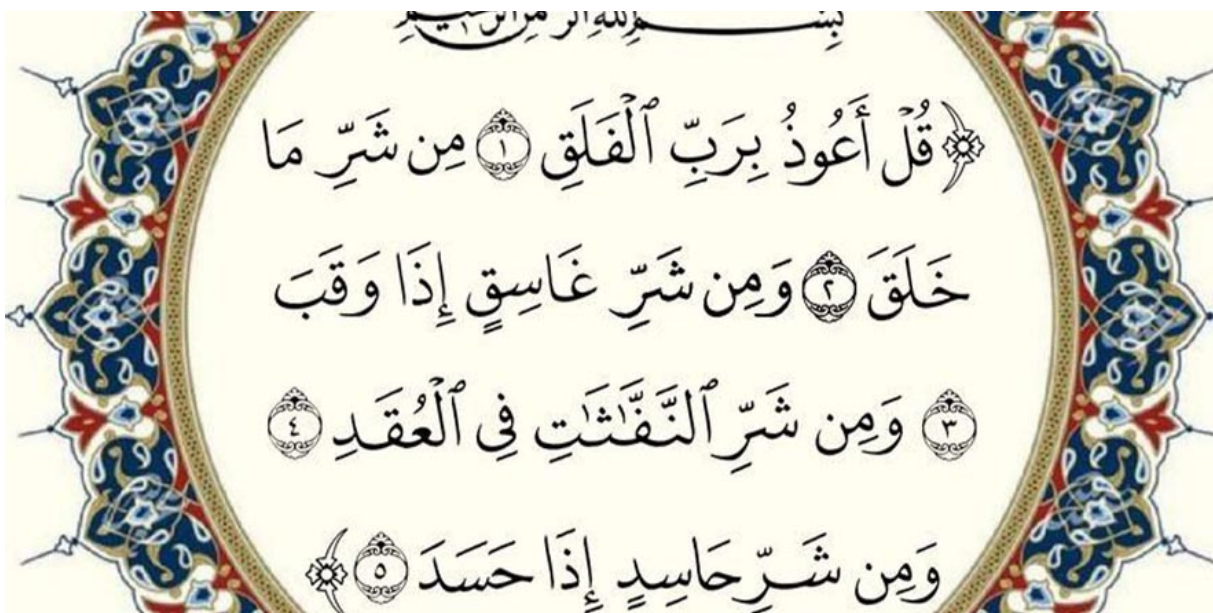 بِسْمِ ٱللَّهِ ٱلرَّحْمَٰنِ ٱلرَّحِيمِ
﴿قُلْ أَعُوذُ بِرَبِّ ٱلْفَلَقِ ١ مِن شَرِّ مَا
خَلَقَ ٢ وَمِن شَرِّ غَاسِقٍ إِذَا وَقَبَ
٣ وَمِن شَرِّ ٱلنَّفَّٰثَٰتِ فِى ٱلْعُقَدِ ٤
وَمِن شَرِّ حَاسِدٍ إِذَا حَسَدَ ٥﴾